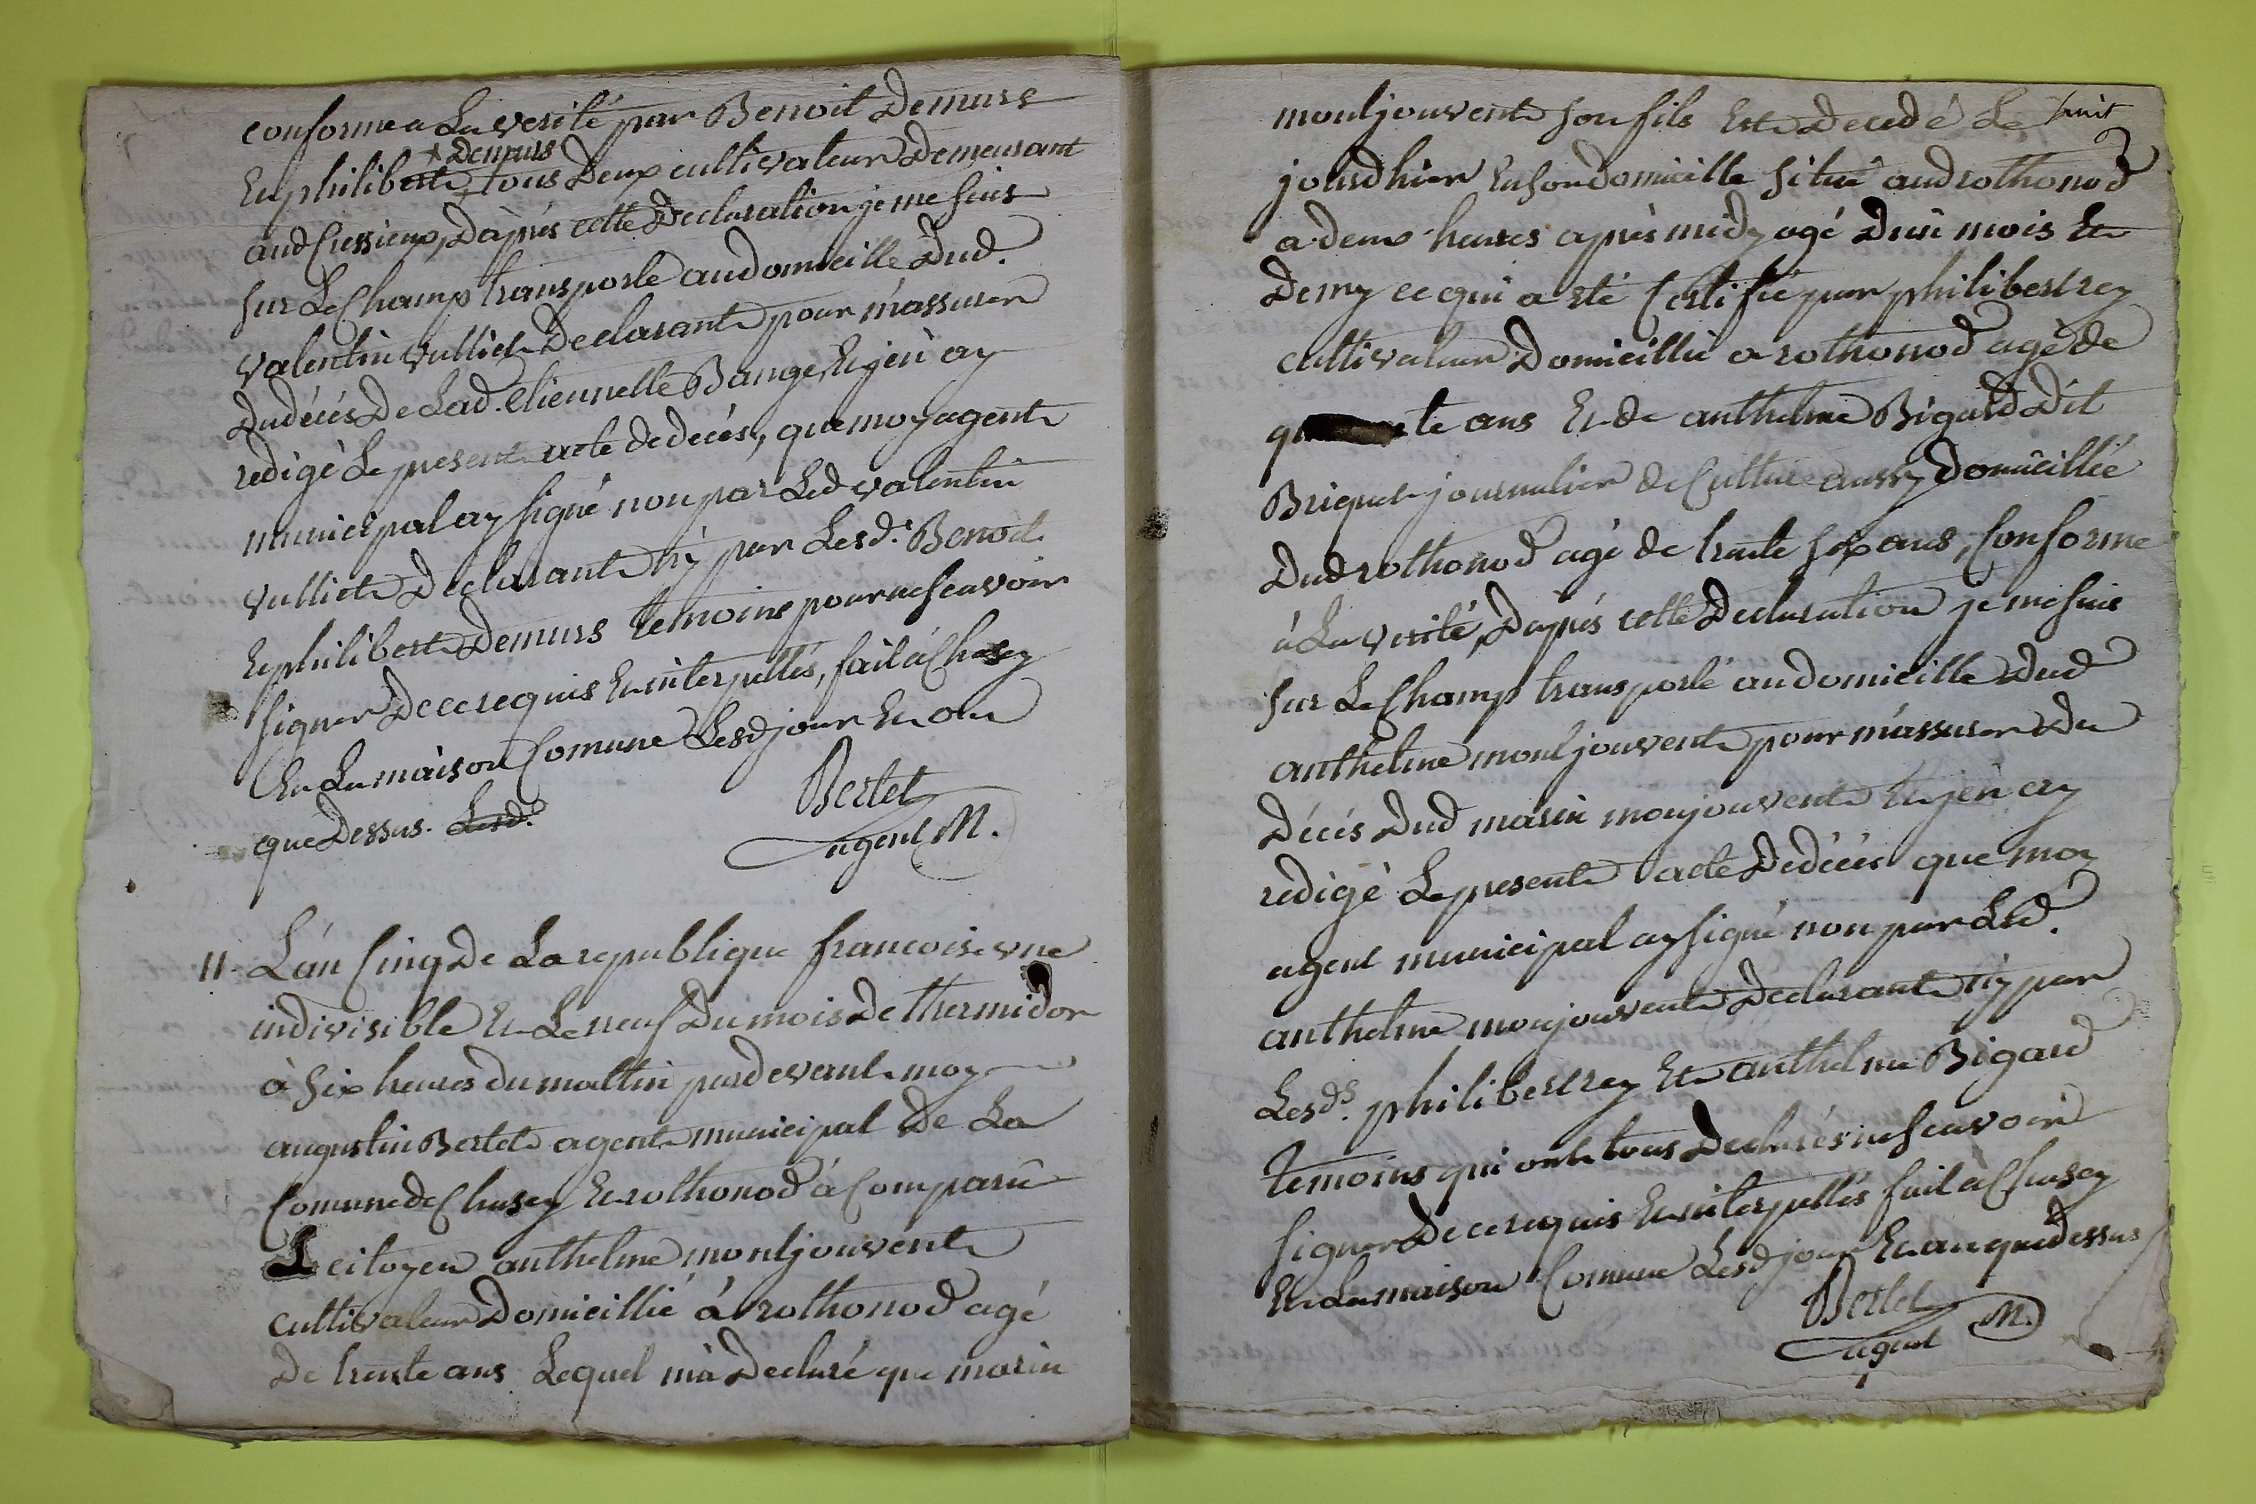 conforme a La verité par Benoit Demurs
Et philibert * Demurs tous Deux cultivateur Demeurant
aud Cressieux, D'après cette Declaration je me suis
sur Le Champ transporté au domicille Dud.
valentin vulliet Declarant pour m'assurer
Du décés De Lad. Etiennette Bange Et j'en ay
redigé Le present acte de décés, que moy agent
municipal ay signé non par Led valentin
vulliet Declarant ny par Lesd. Benoit
Et philibert Demurs temoins pour ne scavoir
signer De ce requis Et interpellés, fait à Chasey
En La maison Comune Lesd jour Et an
que Dessus. Lesd.
Bertet
agent M.
11. L'an Cinq De La republique francoise une
indivisible Et Le neuf Du mois De thermidor
à six heures du mattin pardevant moy
augustin Bertet agent municipal De La
Comune de Chasey Et rothonod à Comparû
Le citoyen anthelme montjouvent
cultivateur Domicillié à rothonod agé
De trente ans Lequel m'à Declaré que marin
montjouvent son fils Est Decedé Le huit
jour d'hier En son domicille situé aud rothonod
a deux heures après midy agé D'un mois Et
Demy ce qui a été Certifié par philibert rey
cultivateur Domicillié a rothonod agé de
te ans Et de anthelme Bigard Dit
Briquet journalier de Culture aussy domicillié
Dud rothonod agé de trente six ans, Conforme
à La verité, D'après cette Declaration je me suis
sur Le Champ transporté au domicille Dud
anthelme montjouvent pour m'assurer Du
Décés Dud marin monjouvent Et j'en ay
redigé Le present acte De décés que moy
agent municipal ay signé non par Led.
anthelme monjouvent Declarant ny par
Lesds. philibert rey Et anthelme Bigard
temoins qui ont tous Declarés ne scavoir
signer De ce requis Et interpellés fait a Chasey
En La maison Comune Lesd jour Et an que dessus
Bertet
agent M.